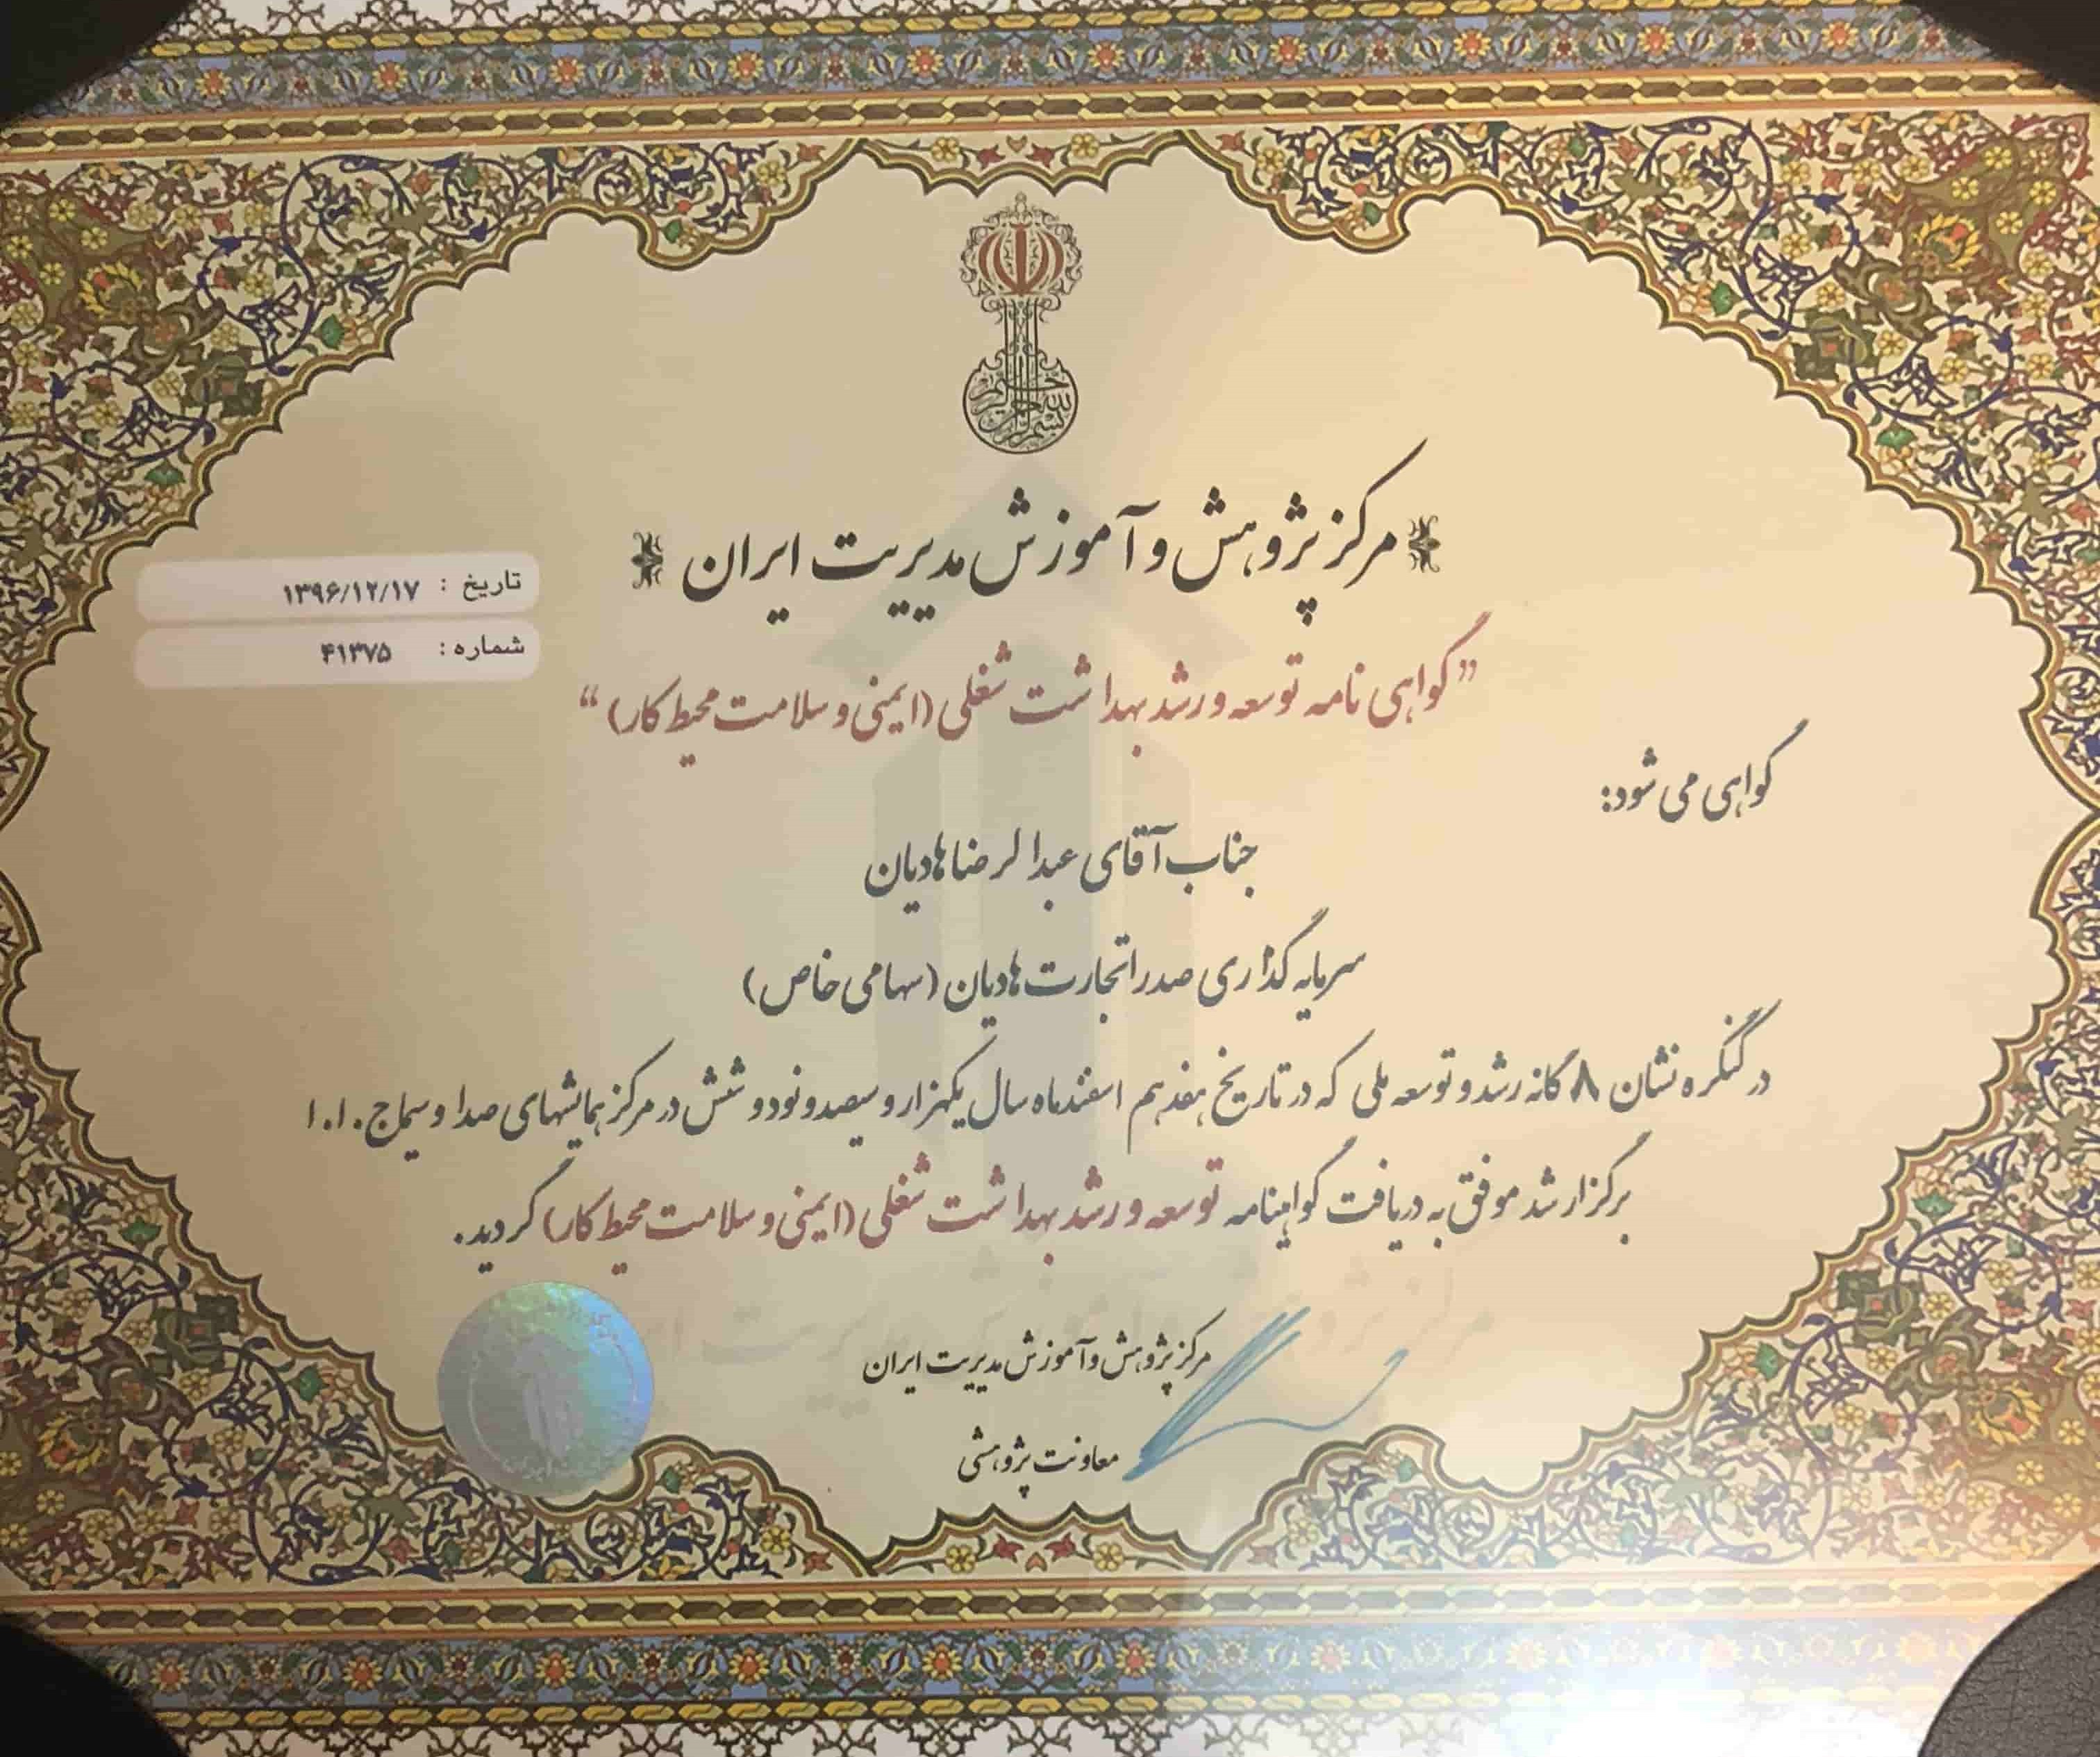 بسم الله الرحمن الرحیم
مرکز پژوهش و آموزش مدیریت ایران
تاریخ : ۱۳۹۶/۱۲/۱۷
شماره : ۴۱۳۷۵
"گواهی نامه توسعه و رشد بهداشت شغلی (ایمنی و سلامت محیط کار)"
گواهی می شود:
جناب آقای عبدالرضا هادیان
سرمایه گذاری صدرا تجارت هادیان (سهامی خاص)
در کنگره نشان ۸ گانه رشد و توسعه ملی که در تاریخ هفدهم اسفندماه سال یکهزار و سیصد و نود و شش در مرکز همایشهای صدا و سیما ج.ا.ا
برگزار شد موفق به دریافت گواهینامه توسعه و رشد بهداشت شغلی (ایمنی و سلامت محیط کار) گردید.
مرکز پژوهش و آموزش مدیریت ایران
معاونت پژوهشی